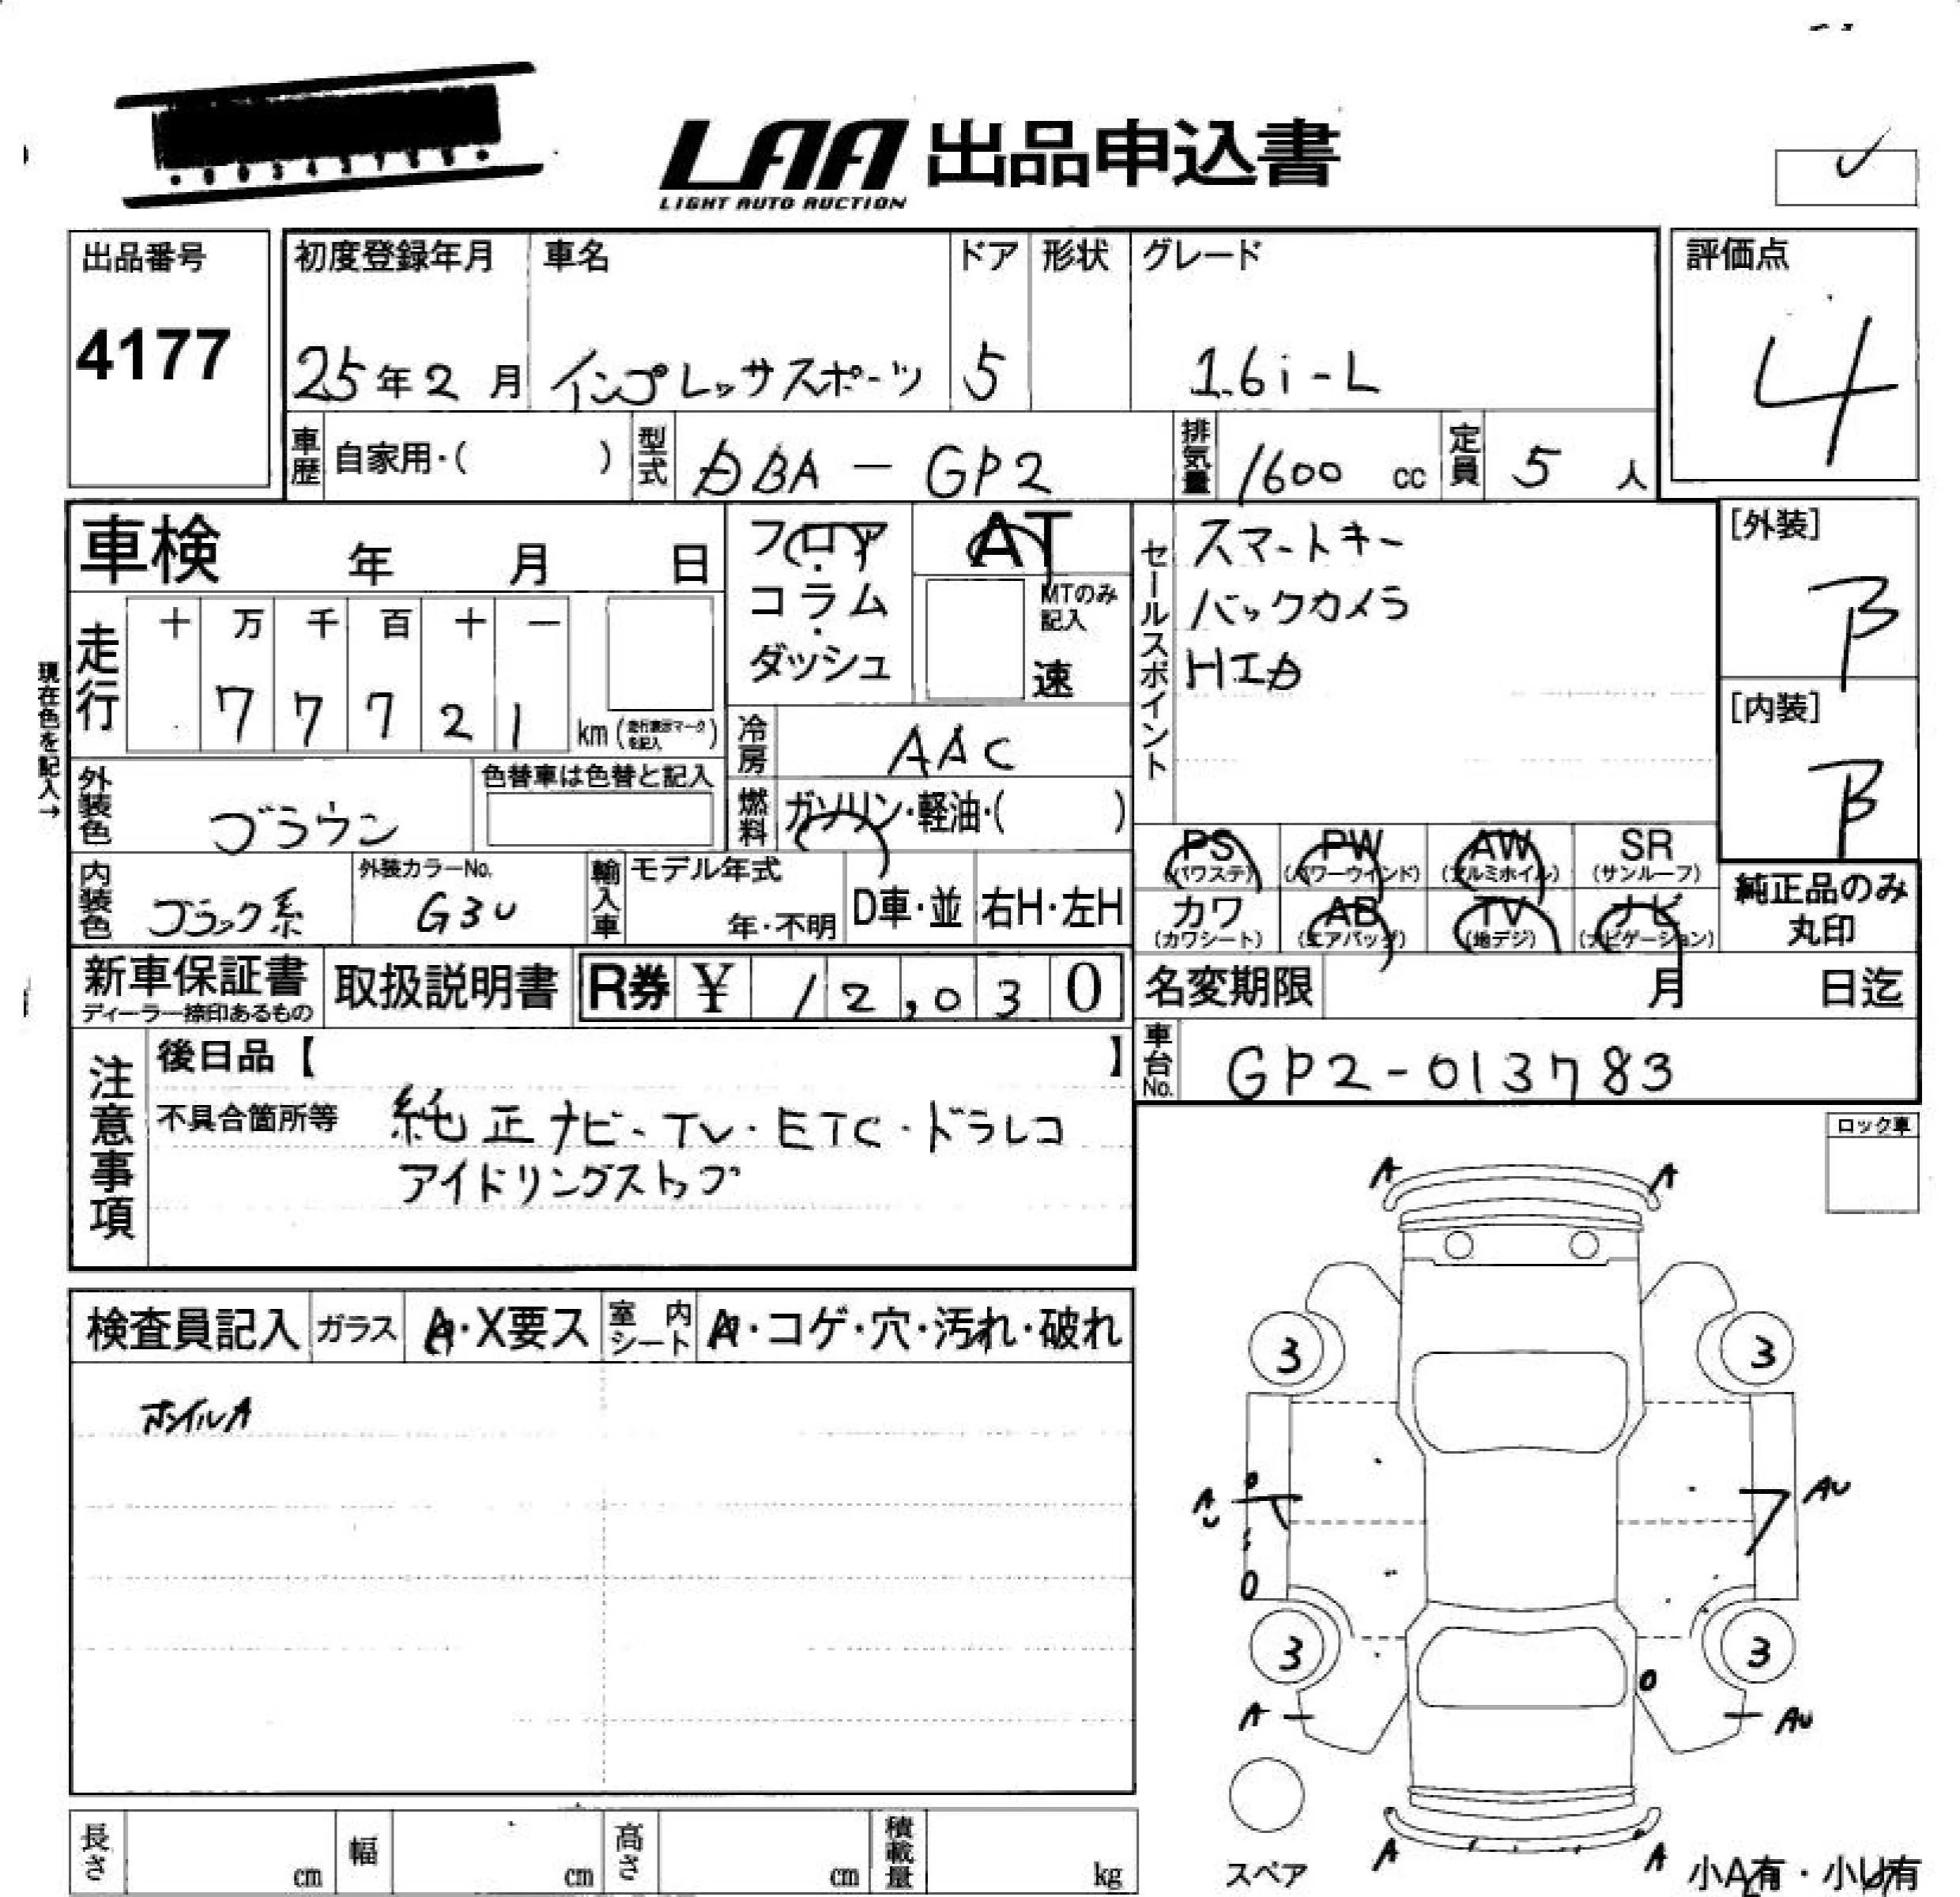 LAA 出品申込書
LIGHT AUTO AUCTION
出品番号
4177
初度登録年月
25年2月
車名
インプレッサスポーツ
ドア
5
形状
グレード
1.6i-L
評価点
4
車歴 自家用・( )
型式 DBA-GP2
排気量 1600 cc
定員 5 人
車検 年 月 日
フロア・コラム・ダッシュ
AT
MTのみ記入
速
セールスポイント
スマートキー
バックカメラ
HID
[外装]
B
[内装]
B
現在色を記入→
走行
十 万 千 百 十 一
7 7 7 2 1
km (走行表示マークを記入)
冷房 AAC
外装色 ブラウン
色替車は色替と記入
燃料 ガソリン・軽油・( )
内装色 ブラック系
外装カラーNo.
G3U
輸入車
モデル年式
年・不明
D車・並
右H・左H
PS (パワステ)
PW (パワーウインド)
AW (アルミホイル)
SR (サンルーフ)
カワ (カワシート)
AB (エアバッグ)
TV (地デジ)
ナビ (ナビゲーション)
純正品のみ
丸印
新車保証書
ディーラー捺印あるもの
取扱説明書
R券 ¥ 12,030
名変期限 月 日迄
車台No. GP2-013783
注意事項
後日品【 】
不具合箇所等 純正ナビ・TV・ETC・ドラレコ
アイドリングストップ
ロック車
検査員記入
ガラス A・X要ス
室内シート A・コゲ・穴・汚れ・破れ
ホイルA
A A
3 3
A U AU
3 3
A AU
スペア
A A
小A有・小U有
長さ cm
幅 cm
高さ cm
積載量 kg